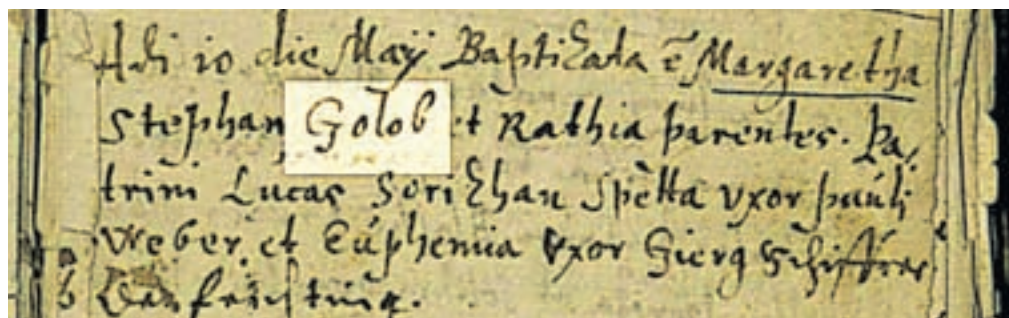 Adi 10 die Maÿ Baptizata ē Margaretha
Stephan Golob et Rathia parentes. Pa:
trini Lucas Sorizhan Spetta vxor pauli
Weber, et Euphemia vxor Gierg